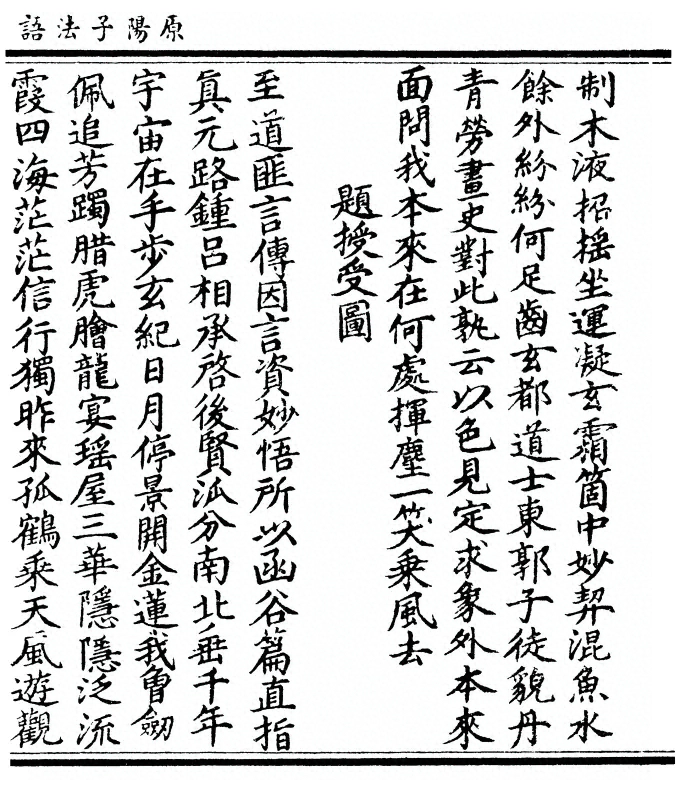 原陽子法語
制木液招搖坐運凝玄霜箇中妙契混魚水
餘外紛紛何足齒玄都道士東郭子徒貌丹
青勞畫史對此孰云以色見定求象外本來
面問我本來在何處揮麈一笑乘風去
題授受圖
至道匪言傳因言資妙悟所以函谷篇直指
真元路鍾呂相承啓後賢派分南北垂千年
宇宙在手步玄紀日月停景開金蓮我曾劒
佩追芳躅腊虎膾龍宴瑤屋三華隱隱泛流
霞四海茫茫信行獨昨來孤鶴乘天風遊觀